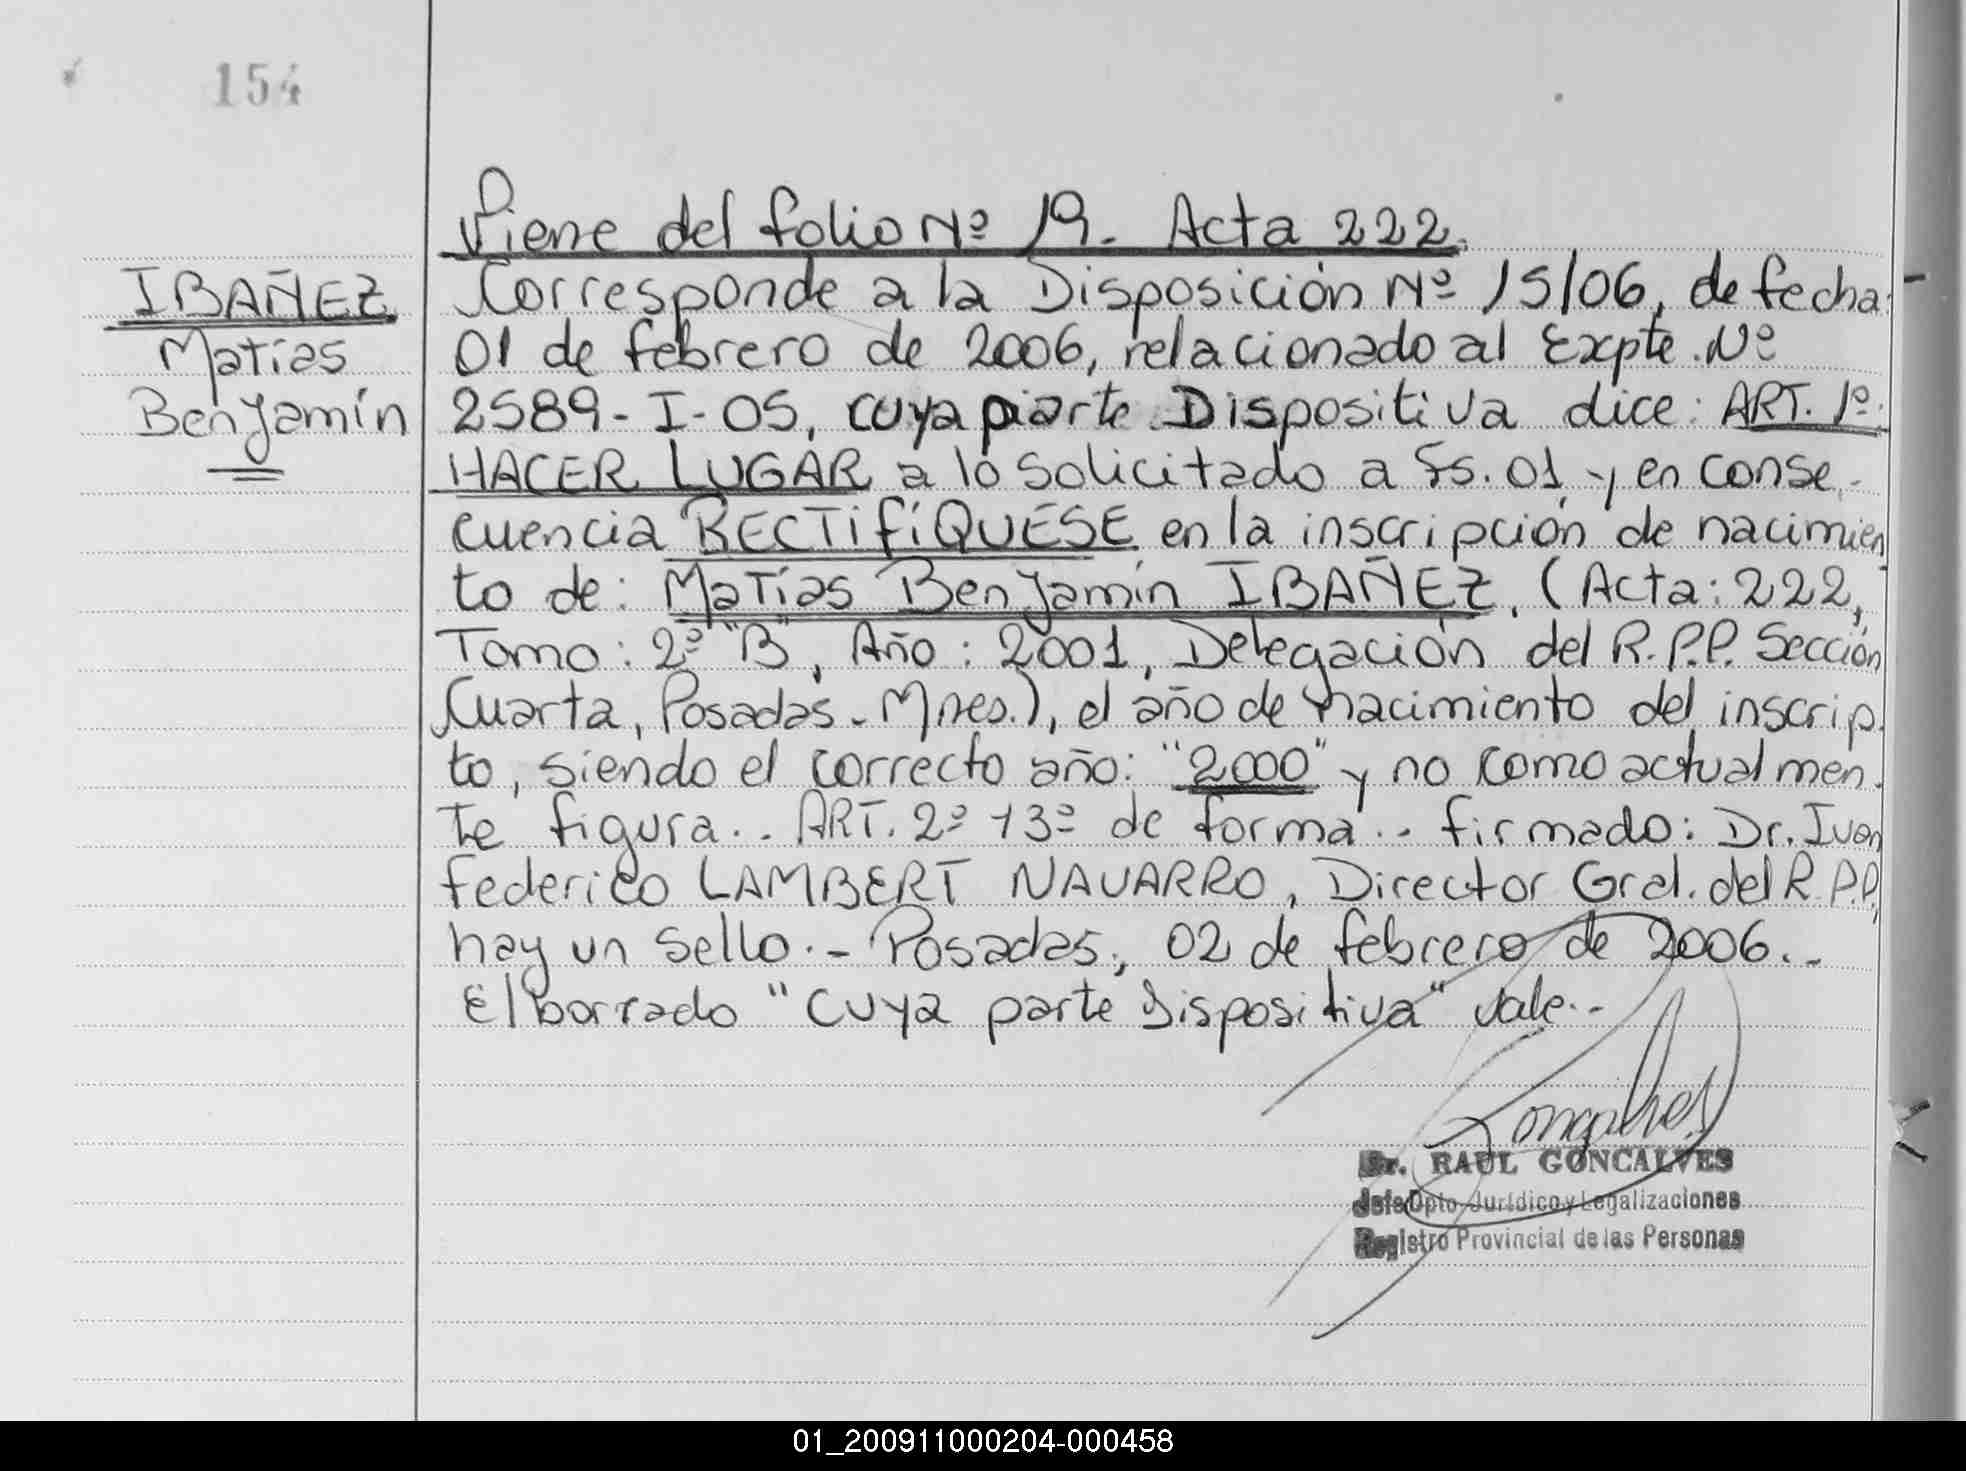 154
Viene del folio Nº 19. Acta 222.
IBAÑEZ
Matías
Benjamín
Corresponde a la Disposición Nº 15/06, de fecha
01 de febrero de 2006, relacionado al Expte. Nº
2589-I-05, cuya parte Dispositiva dice: ART. 1º:
HACER LUGAR a lo solicitado a fs. 01 y en conse-
cuencia RECTIFÍQUESE en la inscripción de nacimien
to de: Matías Benjamín IBAÑEZ, (Acta: 222,
Tomo: 2º "B", Año: 2001, Delegación del R.P.P. Sección
Cuarta, Posadas - Mnes.), el año de nacimiento del inscrip-
to, siendo el correcto año: "2000" y no como actualmen-
te figura.. ART. 2º y 3º de forma.. firmado: Dr. Ivan
Federico LAMBERT NAVARRO, Director Gral. del R.P.P,
hay un sello.- Posadas, 02 de febrero de 2006..
El borrado "cuya parte dispositiva" vale..
Goncalves
Dr. RAUL GONCALVES
Jefe Dpto Jurídico y Legalizaciones
Registro Provincial de las Personas
01_200911000204-000458